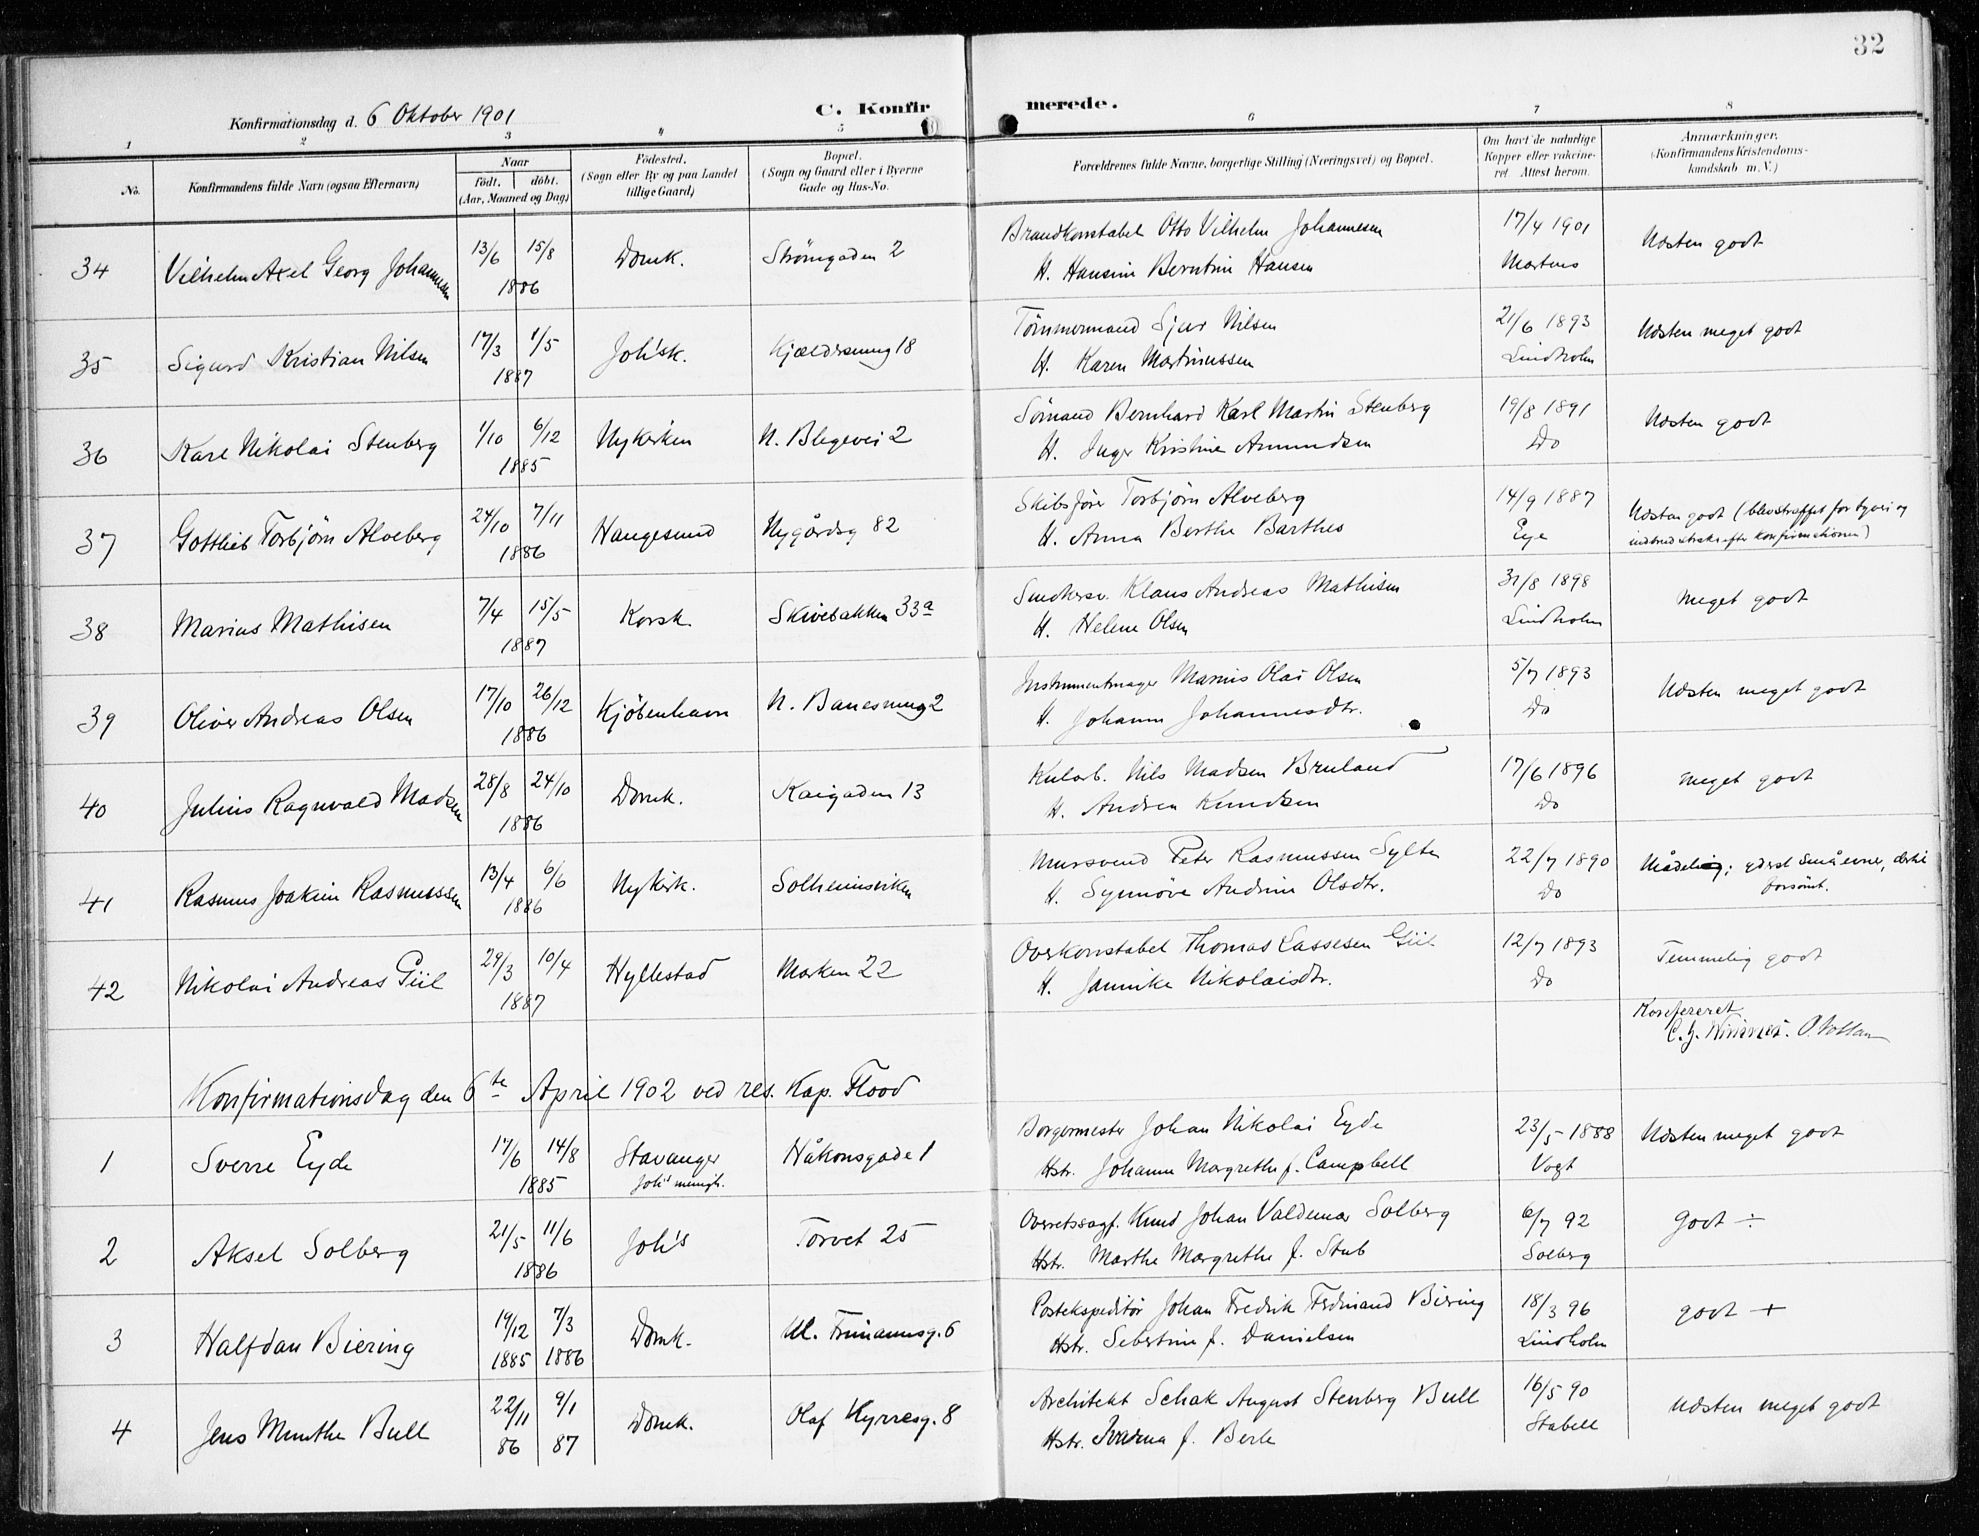 32
Konfirmationsdag d. 6 Oktober 1901
C. Konfirmerede.
1 2 3 4 5 6 7 8
No.
Konfirmandens fulde Navn (ogsaa Efternavn)
Naar
født. døbt.
(Aar, Maaned og Dag)
Fødested.
(Sogn eller By og paa Landet
tillige Gaard)
Bopæl.
(Sogn og Gaard eller i Byerne
Gade og Hus-No.
Forældrenes fulde Navne, borgerlige Stilling (Næringsvei) og Bopæl.
Om havt de naturlige
Kopper eller vakcine-
ret. Attest herom.
Anmærkninger.
(Konfirmandens Kristendoms-
kundskab m. V.)
34 Vilhelm Axel Georg Johannesen 13/6 15/8 1886 Domk. Strømgaden 2
Brandkonstabel Otto Vilhelm Johannesen 17/4 1901 Næsten godt
H. Hansine Berntine Hansen Martens
35 Sigurd Kristian Nilsen 17/3 1/5 1887 Joh'sk. Kjældersmug 18
Tømmermand Sjur Nilsen 21/6 1893 Næsten meget godt
H. Karen Martinussen Lindholm
36 Karl Nikolai Stenberg 1/10 6/12 1885 Nykirken N. Blegevei 2
Sømand Bernhard Karl Martin Stenberg 19/8 1891 Næsten godt
H. Inger Kristine Amundsen Do
37 Gottlieb Torbjørn Alveberg 24/10 7/11 1886 Haugesund Nygårdsg 82
Skibsfører Torbjørn Alveberg 14/9 1887 Næsten godt (blev straffet for tyveri og
H. Anna Berthe Barthes Eye indbrud straks efter konfirmationen)
38 Marius Mathisen 7/4 15/5 1887 Korsk. Skivebakken 33a
Snedkersv. Klaus Andreas Mathisen 31/8 1898 Meget godt
H. Helene Olsen Lindholm
39 Oliver Andreas Olsen 17/10 26/12 1886 Kjøbenhavn N. Banesmug 2
Instrumentmager Marius Olai Olsen 5/7 1893 Næsten meget godt
H. Johanne Johannesdtr. Do
40 Julius Ragnvald Madsen 28/8 24/10 1886 Domk. Kaigaden 13
Kularb. Nils Madsen Bruland 17/6 1896 Meget godt
H. Andrea Knudsen Do
41 Rasmus Joakim Rasmussen 13/4 6/6 1886 Nykirk. Solheimsviken
Mursvend Peter Rasmussen Sylte 22/7 1890 Mådelig; yderst små evner, dertil
H. Synnøve Andrine Olsdtr. Do forsømt.
42 Nikolai Andreas Giil 29/3 10/4 1887 Hyllestad Marken 22
Overkonstabel Thomas Lassesen Giil 12/7 1893 Temmelig godt
H. Jannike Nikolaisdtr. Do
Konfereret
Konfirmationsdag den 6te April 1902 ved res. Kap. Flood
1 Sverre Eyde 17/6 14/8 1885 Stavanger Håkonsgade 1
Joh's menigh.
Borgermester Johan Nikolai Eyde 23/5 1888 Næsten meget godt
Hstr. Johanne Margrethe f. Campbell Vogt
2 Aksel Solberg 21/5 11/6 1886 Joh's Torvet 25
Overretssagf. Knud Johan Valdemar Solberg 6/7 92 Godt ÷
Hstr. Marthe Margrethe f. Stub Solberg
3 Halfdan Biering 19/12 1885 7/3 1886 Domk. Kl. Frimannsg. 6
Postekspeditør Johan Fredrik Ferdinand Biering 18/3 96 godt +
Hstr. Sebertine f. Danielsen Lindholm
4 Jens Munthe Bull 22/11 86 9/1 87 Domk. Olaf Kyrresg. 8
Architekt Schak August Stenberg Bull 16/5 90 Næsten meget godt
Hstr. f. Berle Stabell